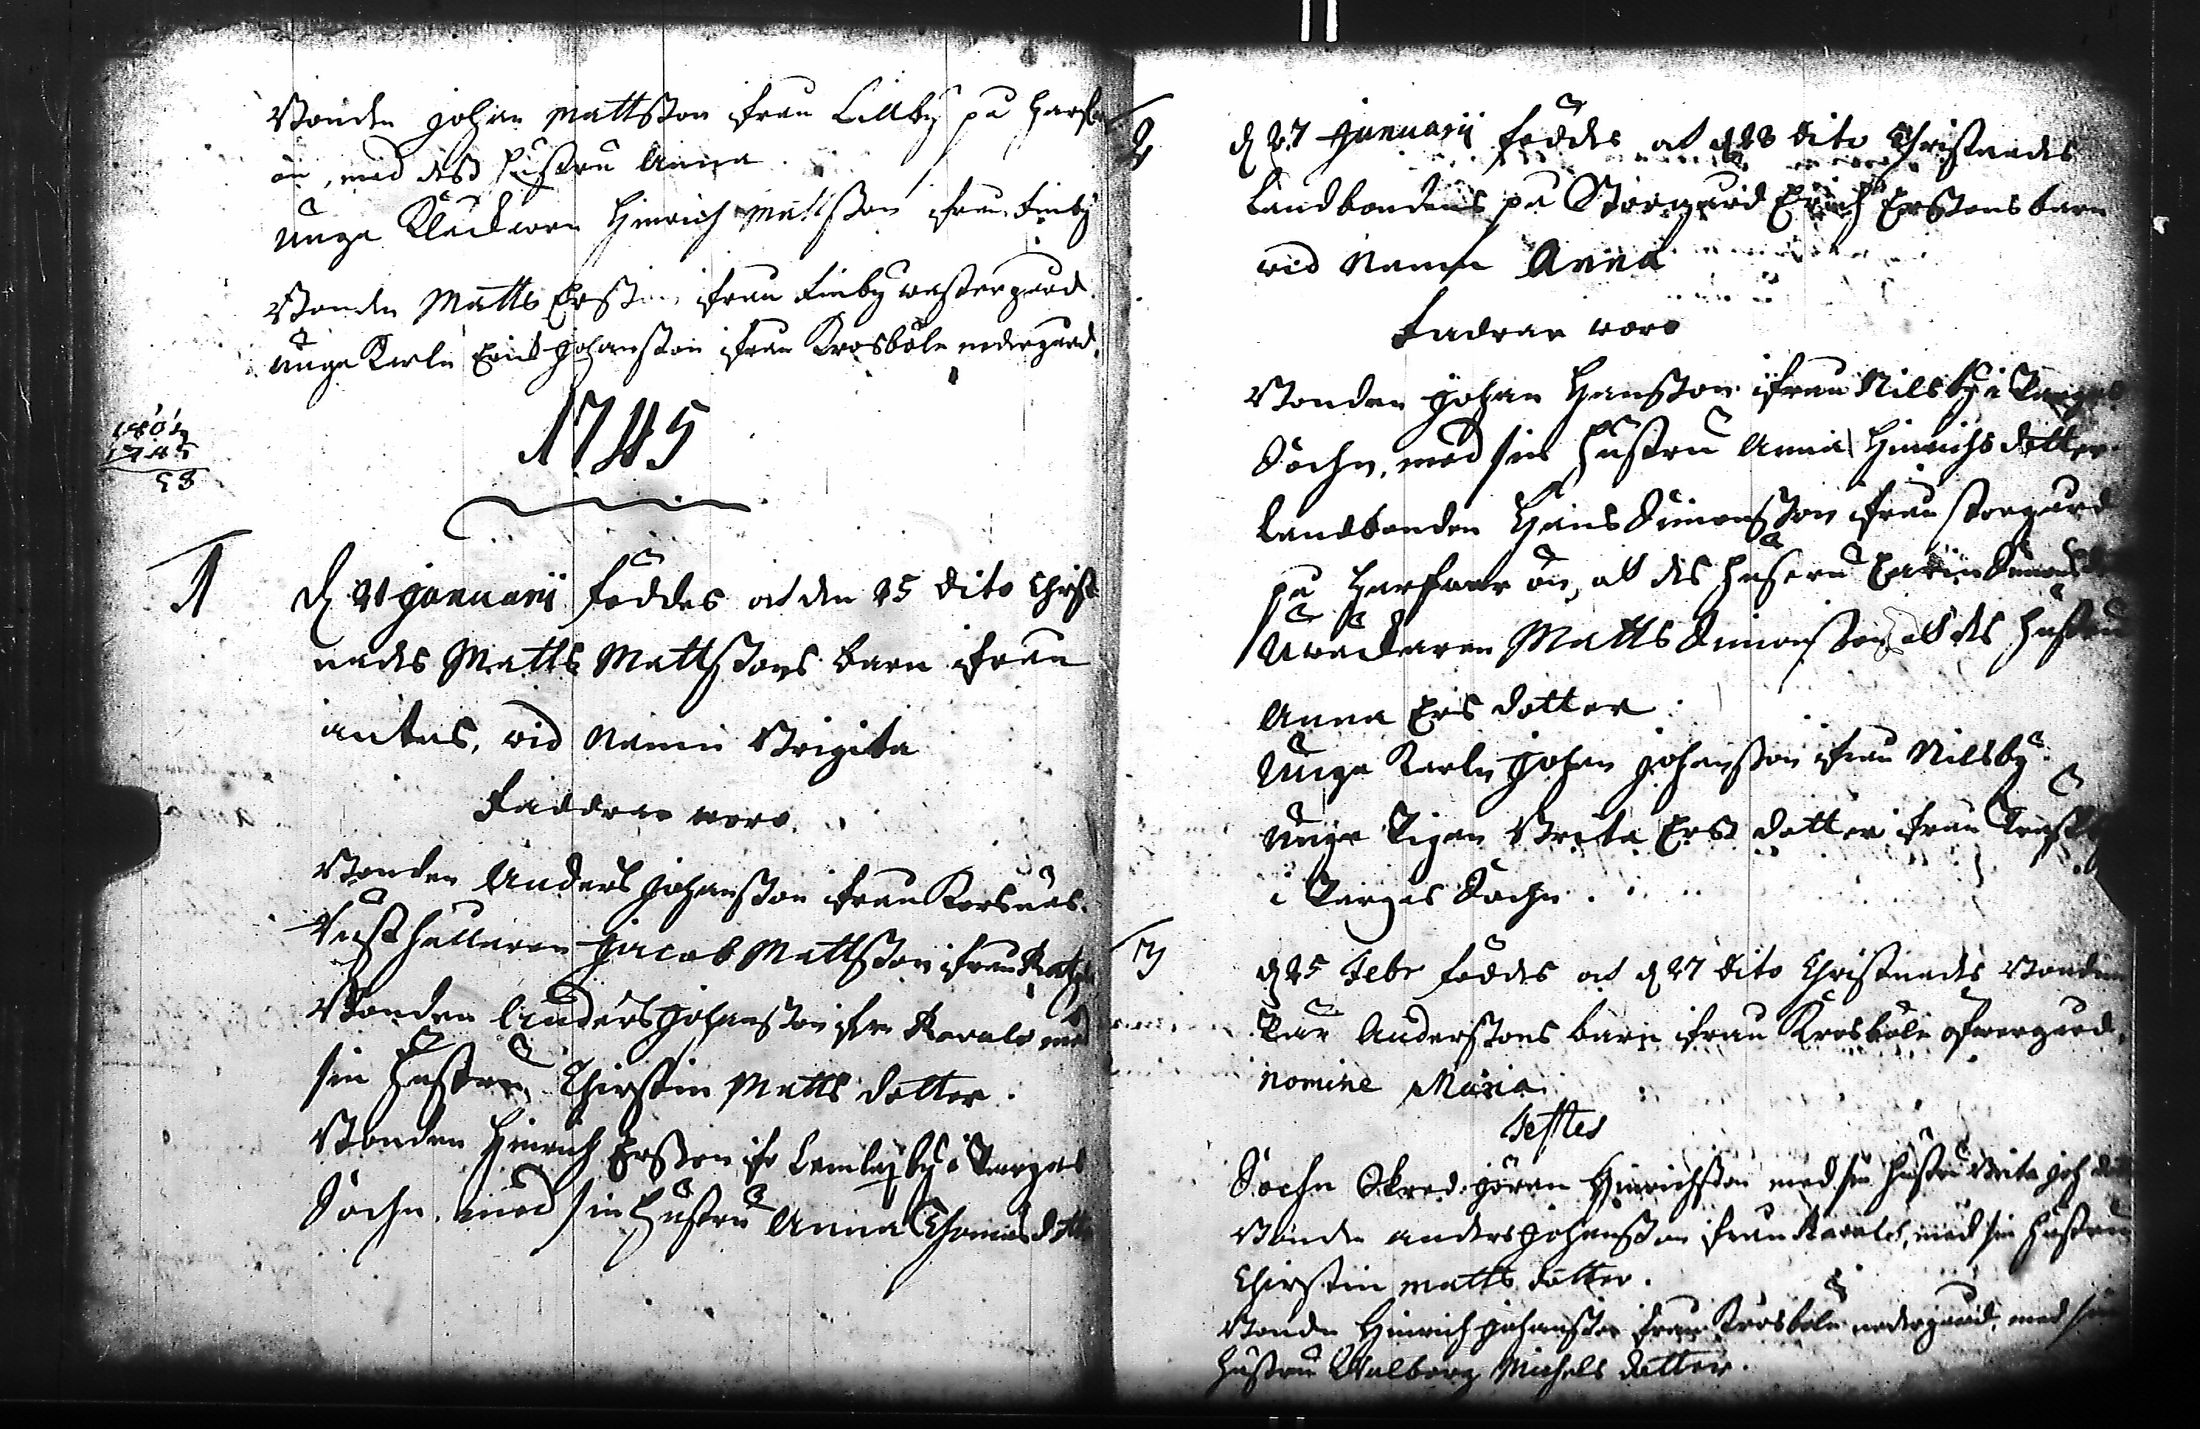 Bonden Johan Mattsson ifrån Lillby på Harfwar
ön, med dess hustru Anna
Unga Klåckaren Hinrich Mattsson ifrån Finby
Bonden Matts Ersson ifrån Finby wästergård.
Unga Karln Erich Johansson ifrån Krosböle nedergård.
1745
1804
1745
58
1
d 21 Januarii föddes at den 25 dito Christ
nades Matts Mattssons barn ifrån
wid Namn Brigita
Faddrar woro
Bonden Anders Johansson ifrån Korsnäs.
Rusthållaren Jacob Mattsson ifrån
Bonden Anders Johansson ifrn Kovalo med
sin Hustru Chirstin Matts dotter.
Bonden Hinrich Ersson ifr Lemlax by i Pargas
Sochn, med sin Hustru Anna Thomas dotter
2
d 27 Januarii föddes at d 28 dito Christnades
Landbondens på Storgård Erich Erssons barn
wid Namn Anna
Fadrar woro
Bonden Johan Hansson ifrån Nilsby i Pargas
Sochn, med sin Hustru Anna Hinrichs dotter.
Landbonden Hans Simonsson ifrån storgård
på Harfwar ön, at des hustru Carin Simonsd
Matts Simonsson at des hustru
Anna Ers dotter
Unga Karln Johan Johansson ifrån Nilsby
Unga Pigan Brita Ers dotter ifrån
i Pargas Sochn.
3
d 25 Febr föddes at d 27 dito Christnades Bonden
Pär Anderssons barn ifrån Krosböle öfwergård.
nomine Maria
Testes
Sochn Skred. Jören Hinrichsson med sin hustru Brita Joh dott
Bonden anders Johansson ifrån Kovalo, med sin hustru
Chirstin matts dotter.
Bonde Hinrich Johansson ifrån Krosböle nedergård, med sin
hustru Walborg Michels dotter.